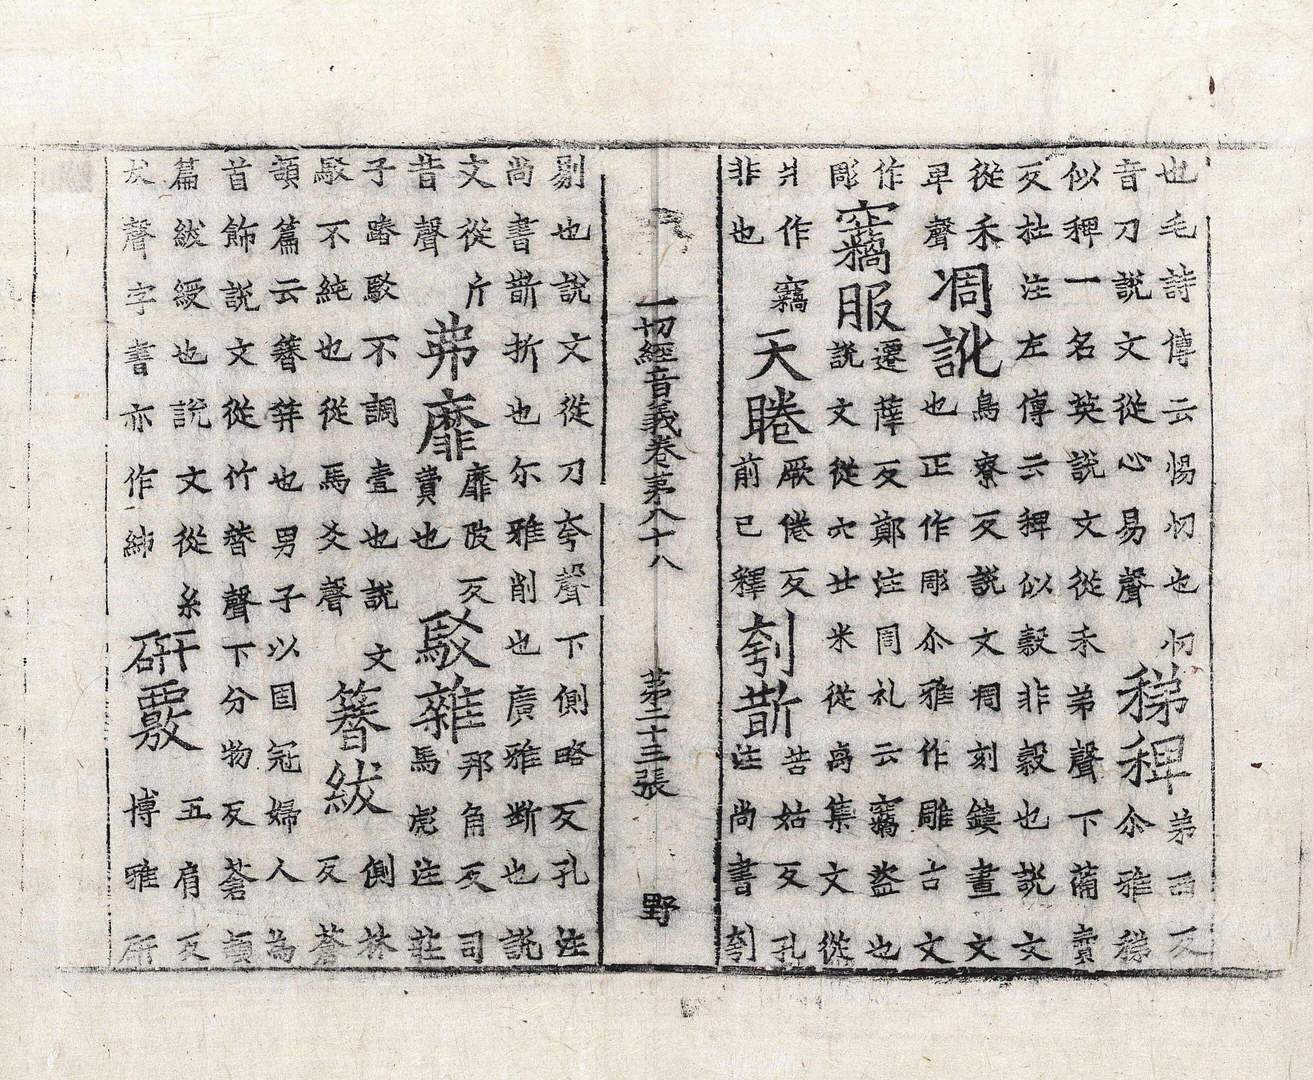 也毛詩傳云惕忉也忉音刀說文從心易聲稊稗苐西反尒雅稊
似稗一名英說文從禾苐聲下蒲賣反杜注左傳云稗似穀非穀也說文
從禾卑聲凋訛鳥寮反說文凋刻鏤畫文也正作彫尒雅作雕古文
作彫竊服遷薛反鄭注周礼云竊盜也說文從穴廿米從离集文從
廾作竊非也天睠厥倦反前已釋刳斮苦姑反孔注尚書刳
一切經音義卷苐八十八 第二十三張 野
剔也說文從刀夸聲下側略反孔注尚書斮折也尔雅削也廣雅斷也說
文從斤昔聲茀靡靡政反費也駁雜邦角反司馬彪注莊
子踳駁不調壹也說文駁不純也從馬爻聲簪紱側林反蒼
頡篇云簪笄也男子以固冠婦人為首飾說文從竹朁聲下分物反蒼頡
篇紱綬也說文從糸犮聲字書亦作紼硏覈五肩反博雅硏